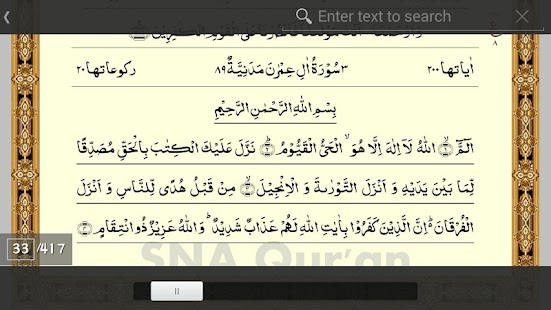 Enter text to search
وَارْحَمْنَا
اٰیاتها ٢٠٠ ٣ سُوْرَةُ اٰلِ عِمْرٰنَ مَدَنِیَّةٌ ٨٩ رکوعاتها ٢٠
بِسْمِ اللّٰهِ الرَّحْمٰنِ الرَّحِیْمِ
الٓمَّٓ ۙ﴿۱﴾ اللّٰهُ لَاۤ اِلٰهَ اِلَّا هُوَ ۙ الْحَیُّ الْقَیُّوْمُ ؕ﴿۲﴾ نَزَّلَ عَلَیْكَ الْكِتٰبَ بِالْحَقِّ مُصَدِّقًا
لِّمَا بَیْنَ یَدَیْهِ وَ اَنْزَلَ التَّوْرٰىةَ وَ الْاِنْجِیْلَ ۙ﴿۳﴾ مِنْ قَبْلُ هُدًی لِّلنَّاسِ وَ اَنْزَلَ
الْفُرْقَانَ ؕ اِنَّ الَّذِیْنَ كَفَرُوْا بِاٰیٰتِ اللّٰهِ لَهُمْ عَذَابٌ شَدِیْدٌ ؕ وَ اللّٰهُ عَزِیْزٌ ذُو انْتِقَامٍ ﴿۴﴾
33 /417
SNA Qur'an